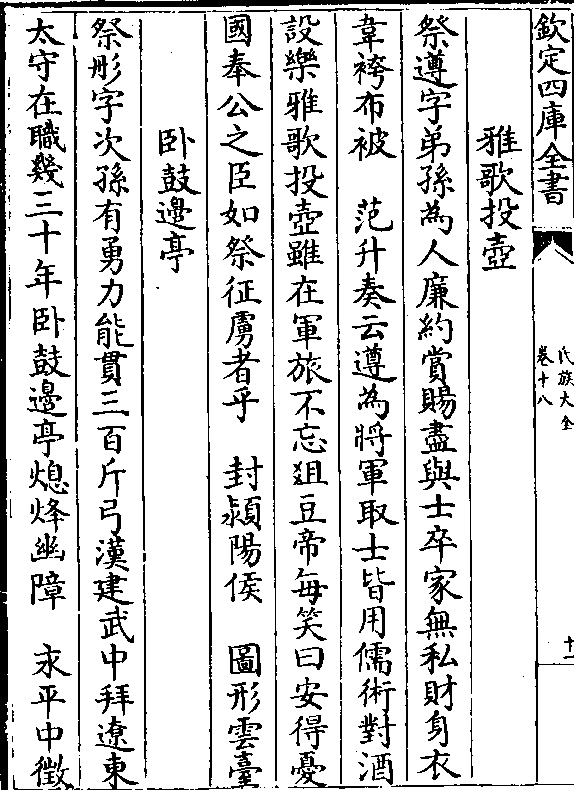 欽定四庫全書
氏族大全
卷十八
十一
雅歌投壺
祭遵字弟孫為人廉約賞賜盡與士卒家無私財身衣
韋袴布被　范升奏云遵為將軍取士皆用儒術對酒
設樂雅歌投壺雖在軍旅不忘俎豆帝每笑曰安得憂
國奉公之臣如祭征虜者乎　封潁陽侯　圖形雲臺
卧鼓邊亭
祭肜字次孫有勇力能貫三百斤弓漢建武中拜遼東
太守在職幾三十年卧鼓邊亭熄烽幽障　永平中徵